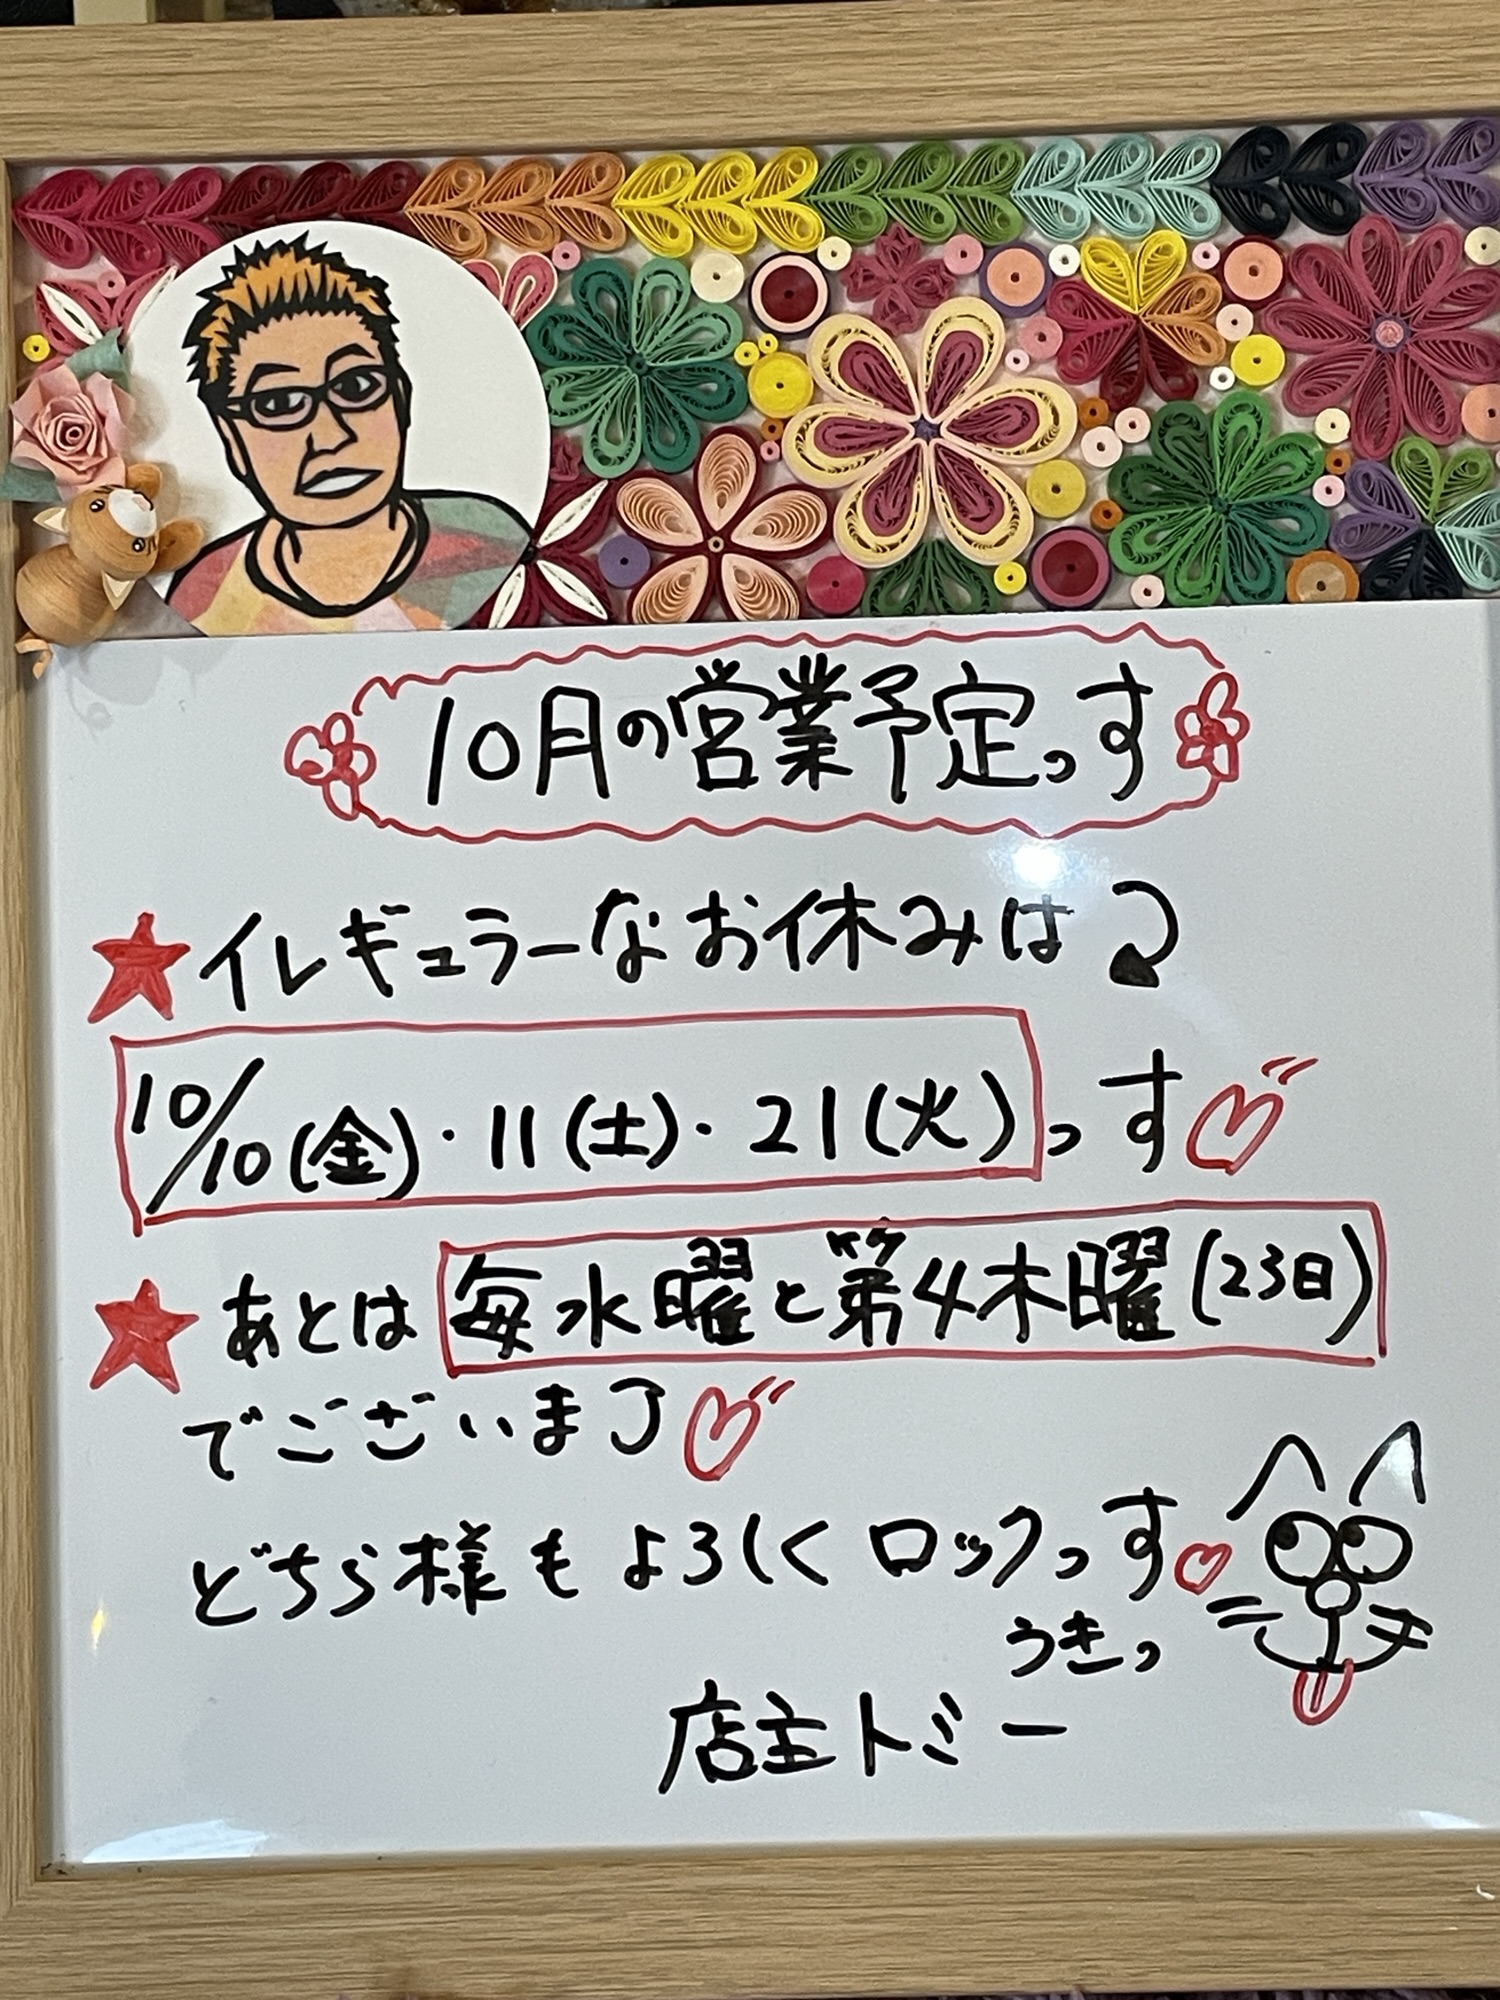 10月の営業予定っす
★イレギュラーなお休みは
10/10(金)・11(土)・21(火)っす
★あとは毎水曜と第4木曜(23日)
でございまJ
どちら様もよろしくロックっす
うきっ
店主トミー